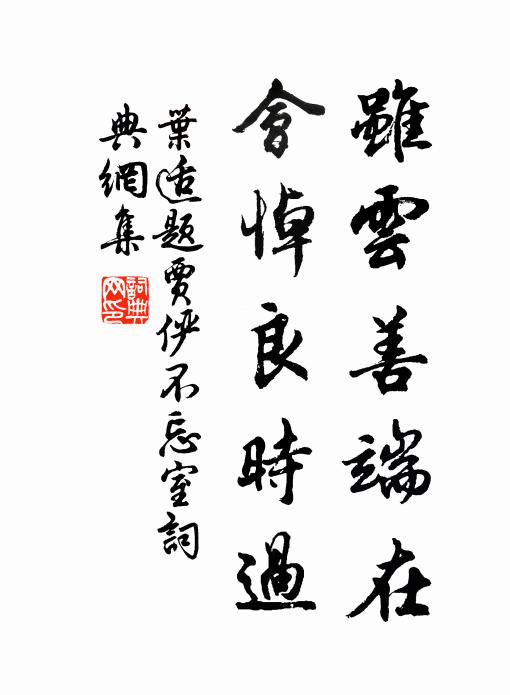 雖雲善端在
會悼良時過
葉适題賈俨不忘室詞
典網集
詞典網印